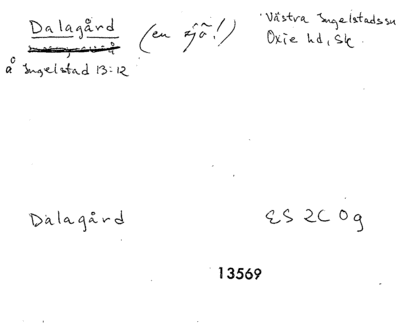 Dalagård (en sjö!) Västra Ingelstads sn
Oxie hd, Sk.
å Ingelstad 13:12
Dalagård ES 2C 0g
13569